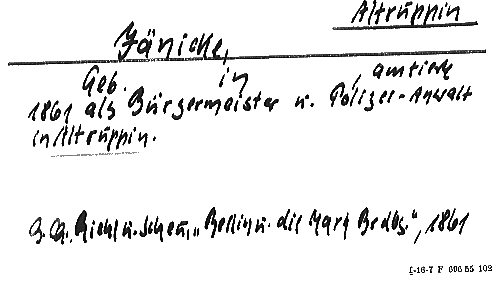 Altruppin
Jänicke,
Geb. in , amtierte
1861 als Bürgermeister u. Polizei-Anwalt
in Altruppin.
Riehl u. Scheu, "Berlin u. die Mark Brdbg.", 1861
I-16-7 F 606 55 102